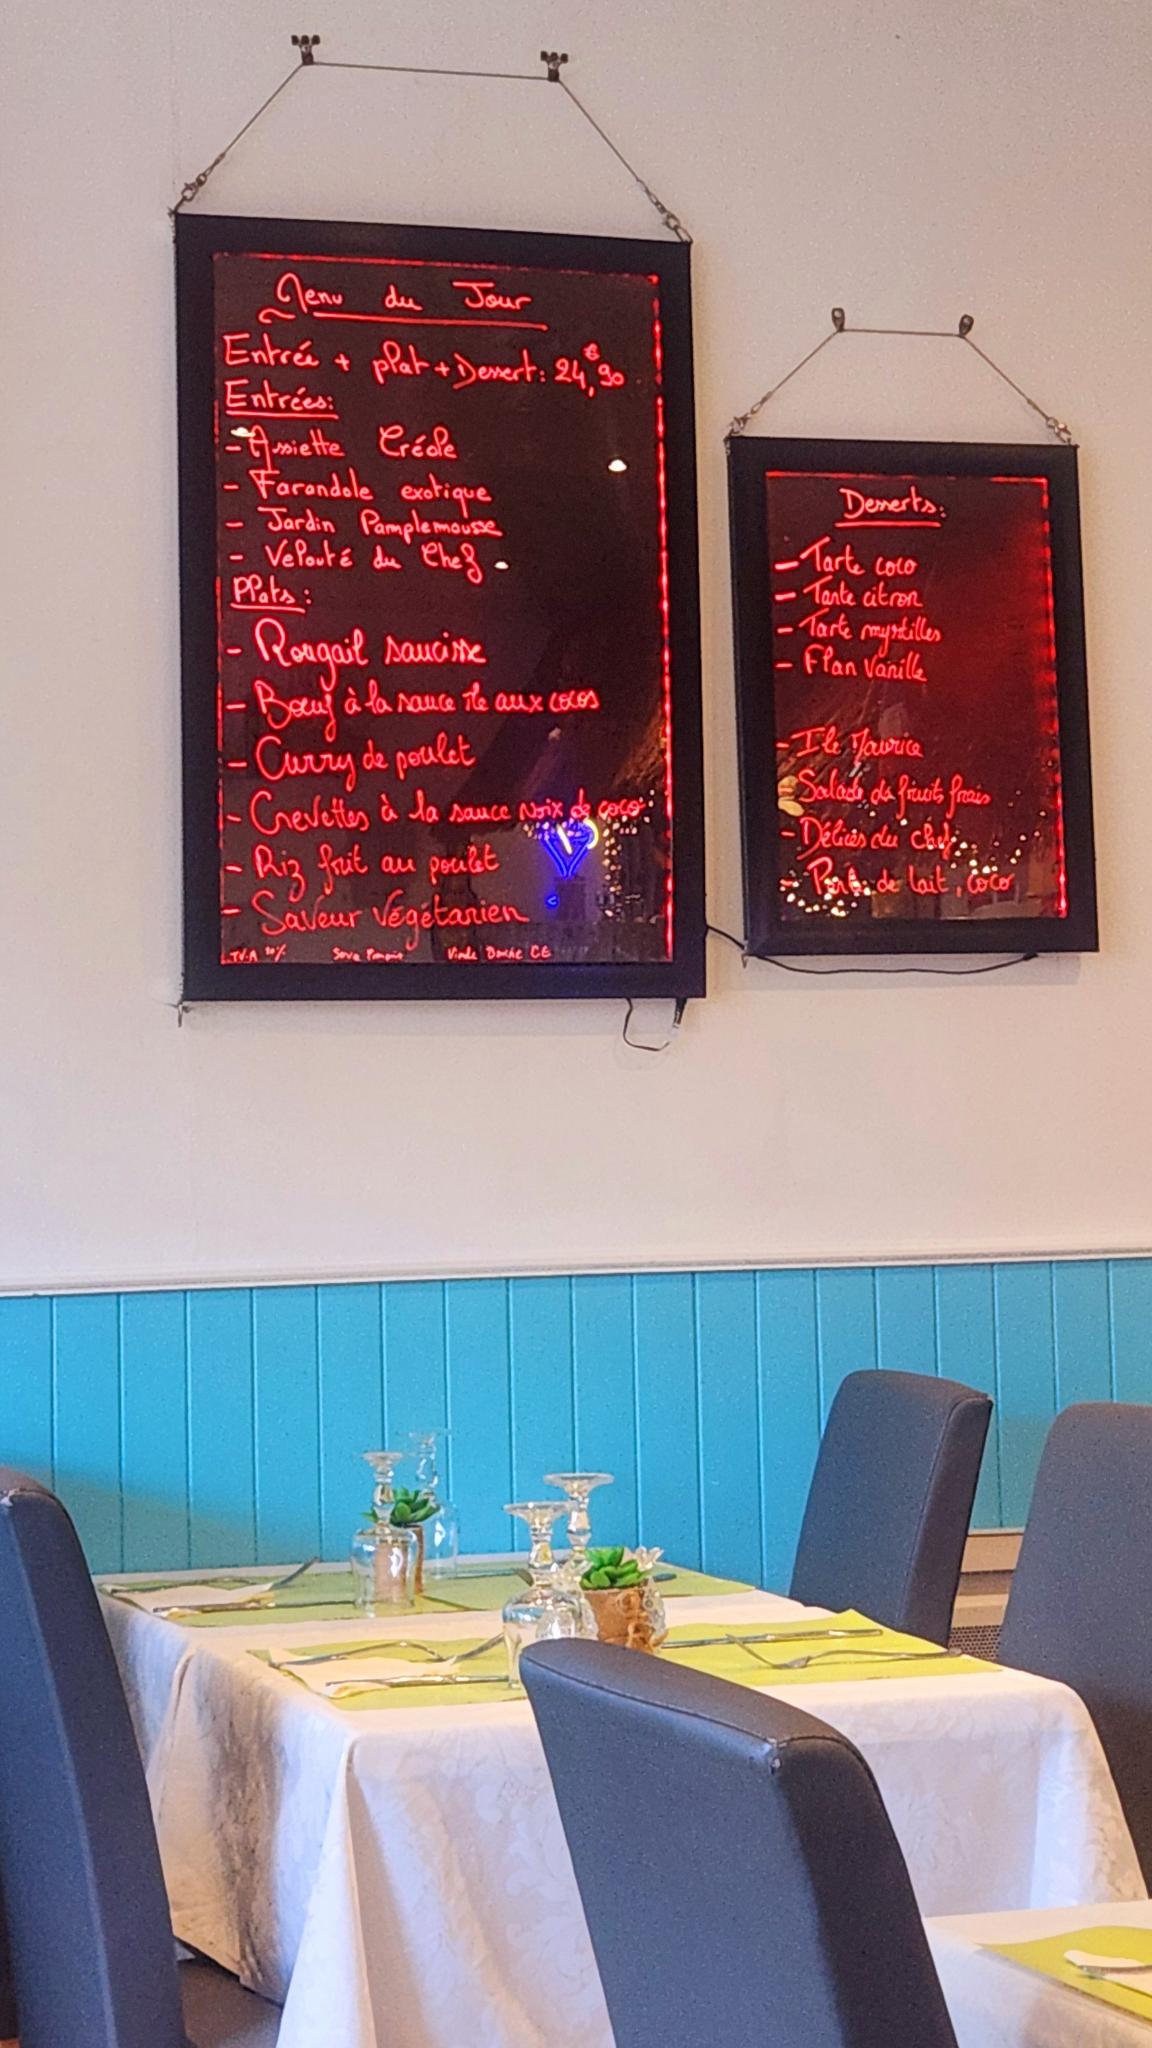 Menu du Jour
Entrée + plat + Dessert: 24,€90
Entrées:
- Assiette Créole
- Farandole exotique
- Jardin Pamplemousse
- Velouté du Chef
Plats:
- Rougail saucisse
- Bœuf à la sauce île aux cocos
- Curry de poulet
- Crevettes à la sauce noix de coco
- Riz frit au poulet
- Saveur végétarien
T.V.A 10%
CE
Desserts:
- Tarte coco
- Tarte citron
- Tarte myrtilles
- Flan Vanille
- Ile Maurice
- Salade de fruits frais
- Délices du chef
- de lait, coco